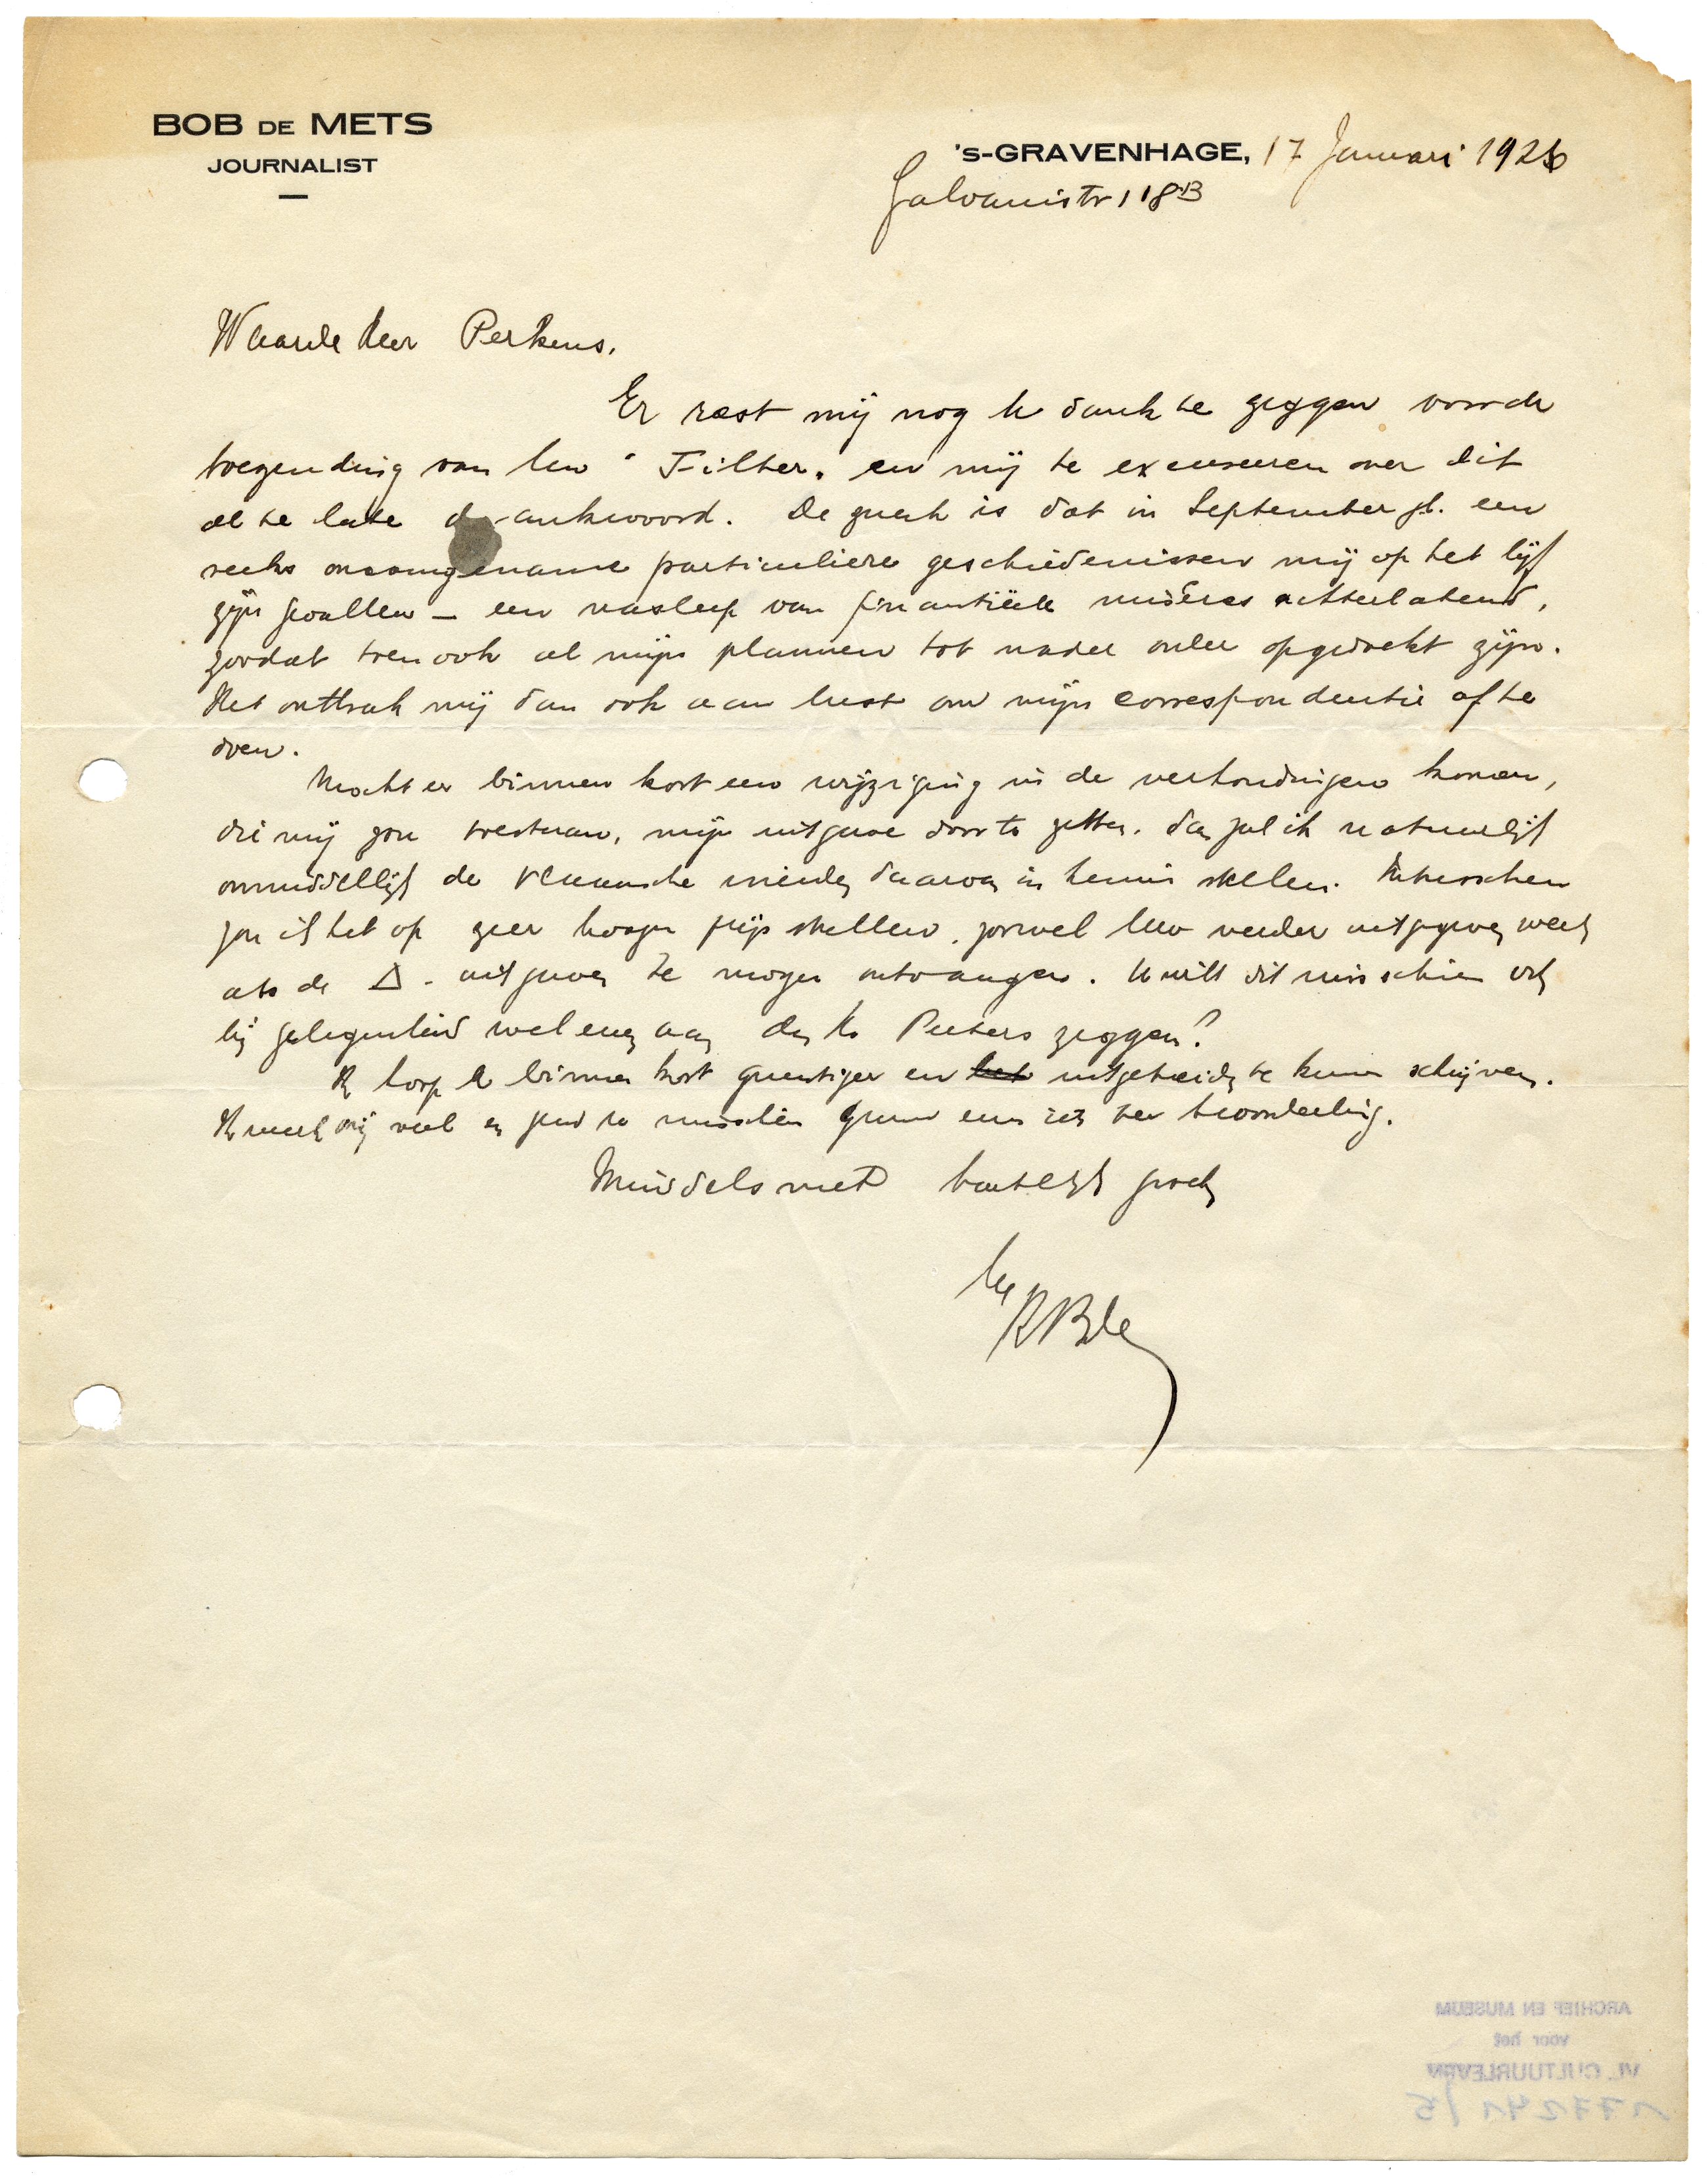 BOB DE METS
JOURNALIST
's-GRAVENHAGE, 17 Januari 1926
Galvanistr 118B
Waarde Heer Perkens.
Er rest mij nog U dank te zeggen voor de
toezending van Uw "Filter" en mij te excuseeren over dit
al te late antwoord. De zaak is dat in September jl. een
reeks onaangename particuliere geschiedenissen mij op het lijf
zijn gevallen — een nasleep van finantiëele misères achterlatend,
zoodat toen ook al mijn plannen tot nader order opgedoekt zijn.
Het ontbrak mij dan ook aan lust om mijn correspondentie af te
doen.
Mocht er binnen kort een wijziging in de verhoudingen komen,
die mij zou toestaan, mijn uitgave door te zetten, dan zal ik natuurlijk
onmiddellijk de Vlaamsche vrienden daarvan in kennis stellen. Intusschen
zou ik het op zeer hoogen prijs stellen, zoowel Uw verder uitgegeven werk
als de Δ - uitgaven te mogen ontvangen. U wilt dit misschien ook
bij gelegenheid wel eens aan den Hr Peeters zeggen?
Ik hoop U binnen kort gunstiger en het uitgebreider te kunnen schrijven.
Ik werk vrij veel en zend U misschien gauw eens iets ter beoordeeling.
Inmiddels met hartelijk groeten
Uw
ARCHIEF EN MUSEUM
voor het
VL. CULTUURLEVEN
177241/5